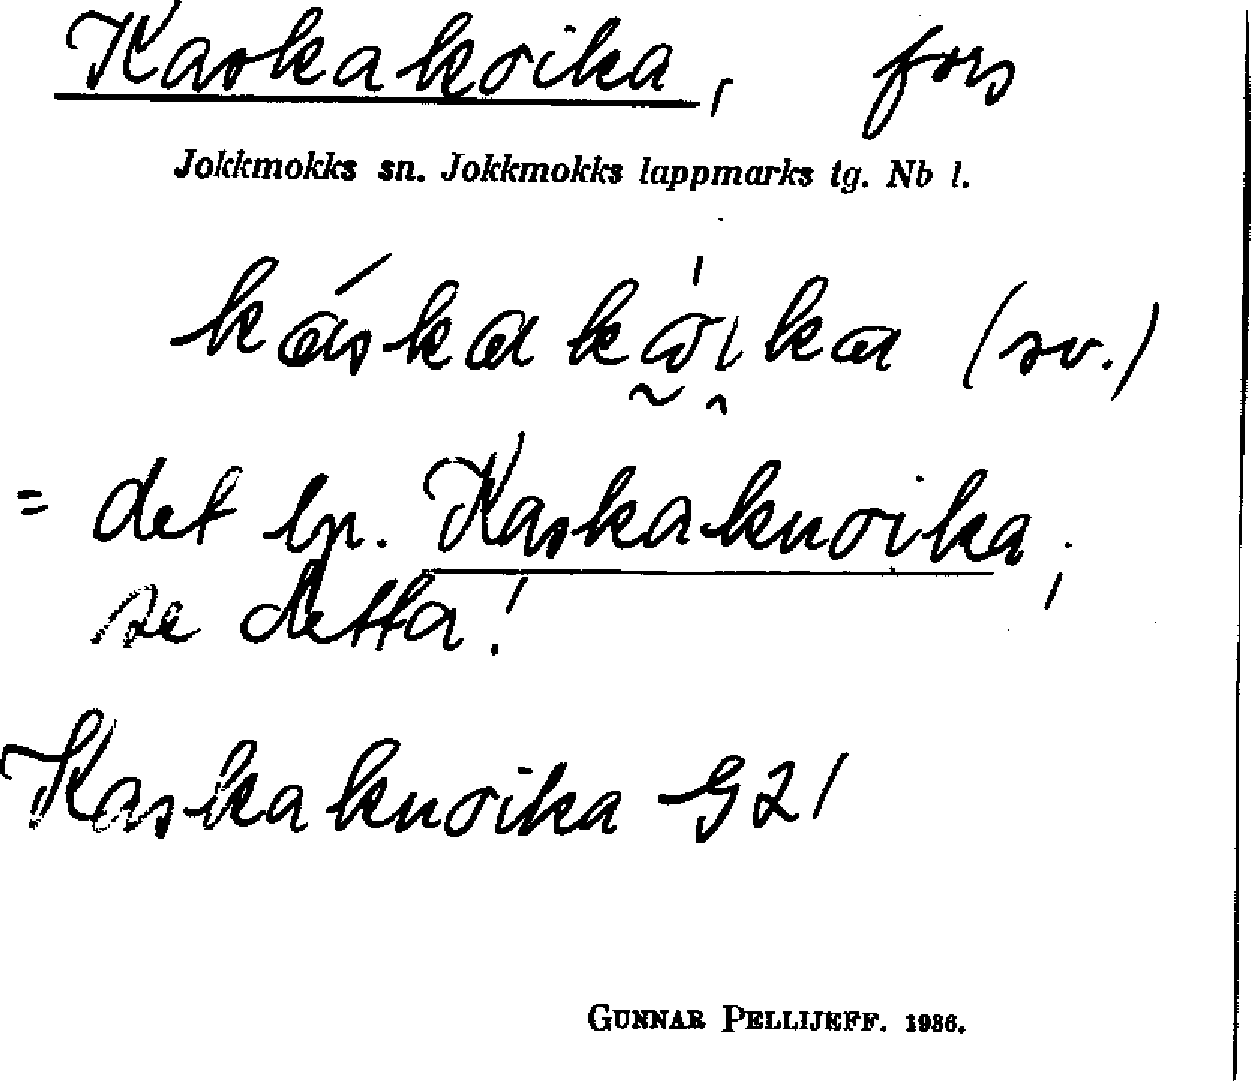 Kaskakoika, fors
Jokkmokks sn. Jokkmokks lappmarks tg. Nb l.
káskakå̀ika (sv.)
= det lp. Kaskakuoika,
se detta!
Kaskakuoika G21
GUNNAR PELLIJEFF. 1986.